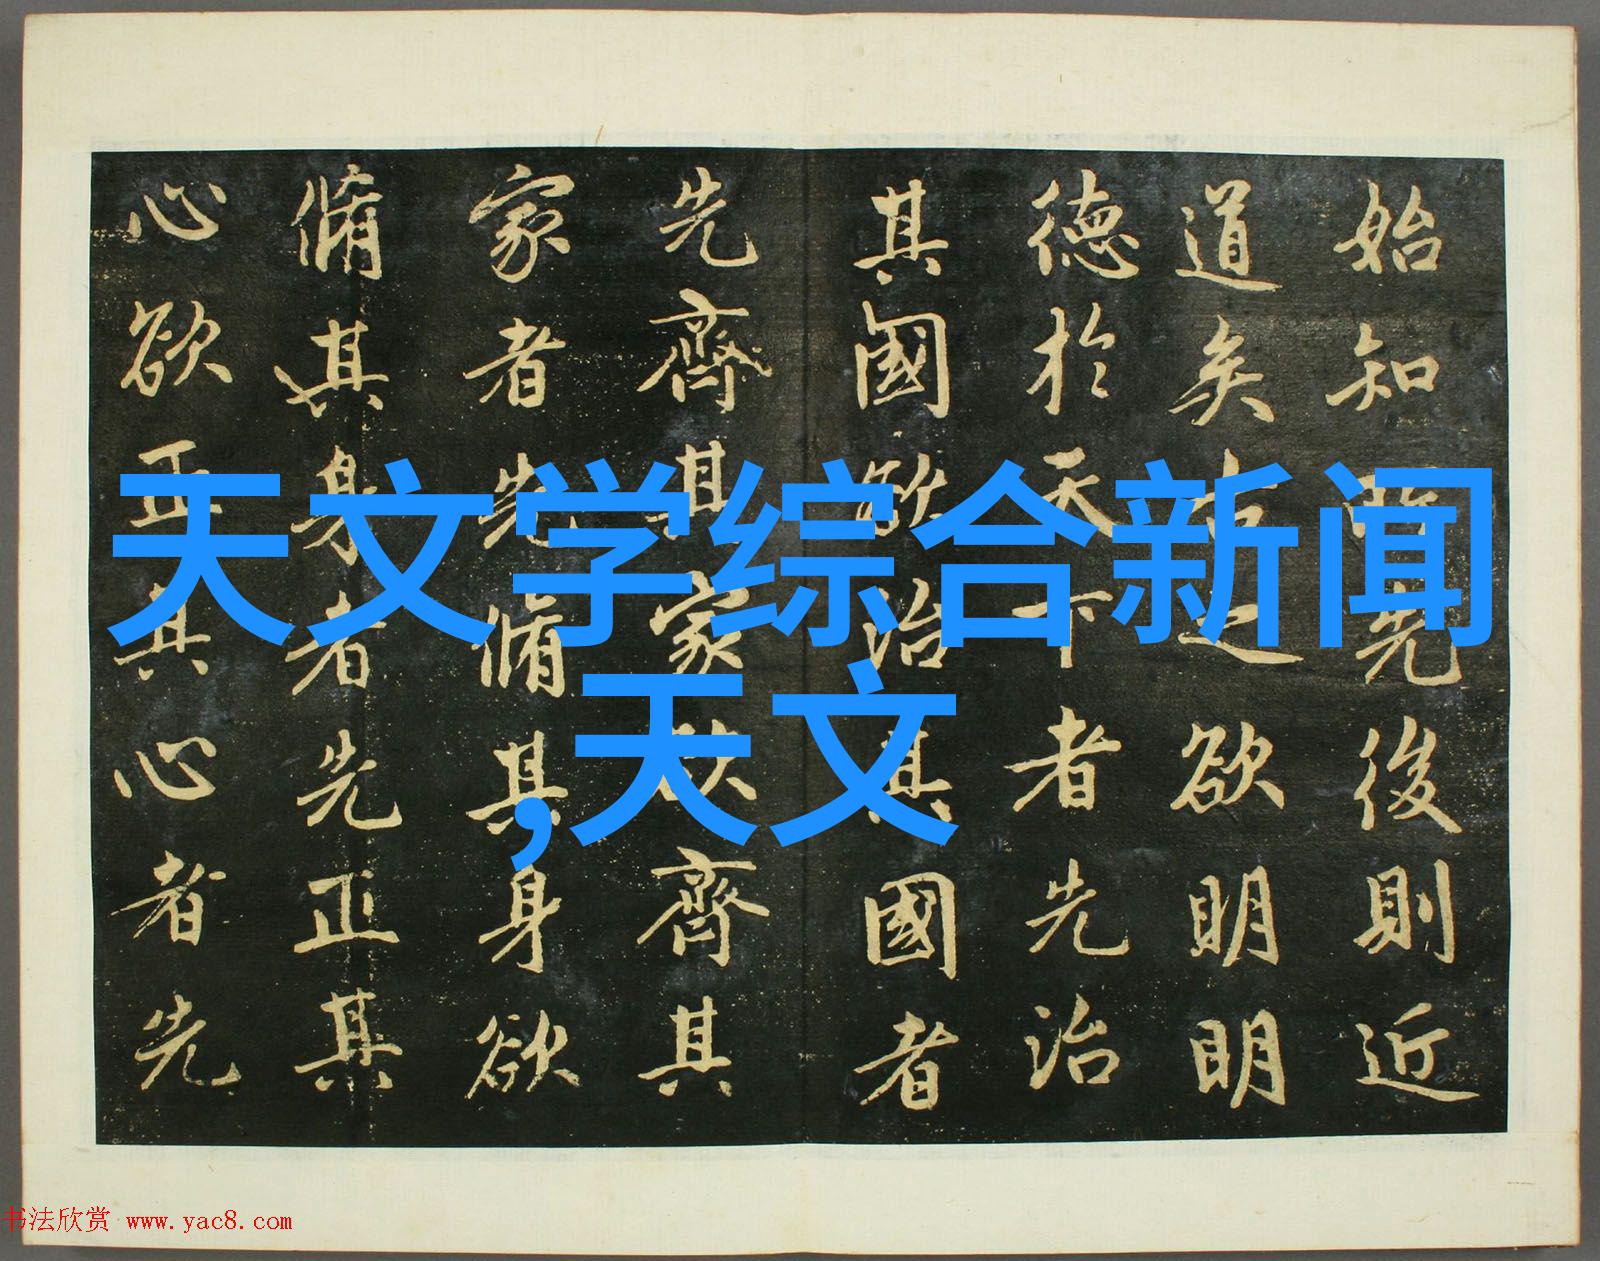 始知先後則近
道矣古之欲明明
德於天下者先治
其國欲治其國者
先齊其家欲齊其
家者先脩其身欲
脩其身者先正其
心欲正其心者先
天文学综合新闻
,天文
书法欣赏 www.yac8.com